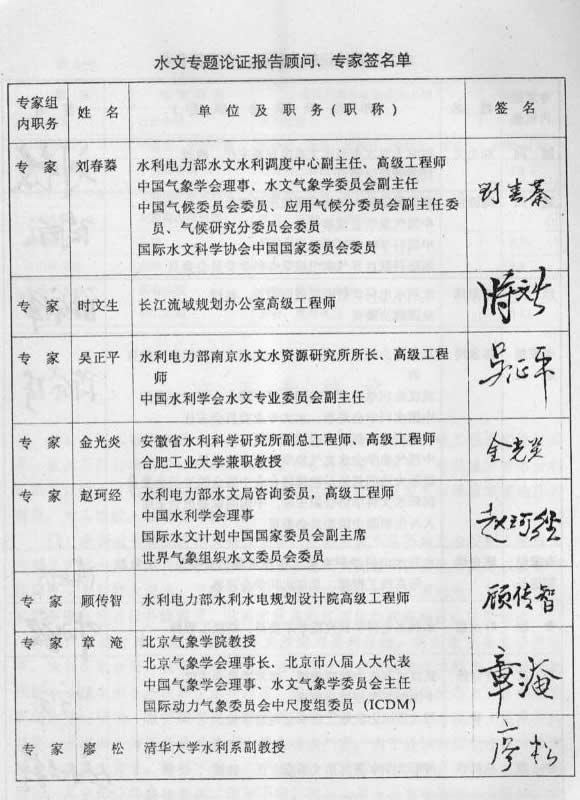 水文专题论证报告顾问、专家签名单
专家组
内职务
姓 名
单 位 及 职 务（职 称）
签 名
专 家 刘春蓁 水利电力部水文水利调度中心副主任、高级工程师
中国气象学会理事、水文气象学委员会副主任
中国气候委员会委员、应用气候分委员会副主任委
员、气候研究分委员会委员
国际水文科学协会中国国家委员会委员
刘春蓁
专 家 时文生 长江流域规划办公室高级工程师
时文生
专 家 吴正平 水利电力部南京水文水资源研究所所长、高级工程
师
中国水利学会水文专业委员会副主任
吴正平
专 家 金光炎 安徽省水利科学研究所副总工程师、高级工程师
合肥工业大学兼职教授
金光炎
专 家 赵珂经 水利电力部水文局咨询委员，高级工程师
中国水利学会理事
国际水文计划中国国家委员会副主席
世界气象组织水文委员会委员
赵珂经
专 家 顾传智 水利电力部水利水电规划设计院高级工程师
顾传智
专 家 章 淹 北京气象学院教授
北京气象学会理事长、北京市八届人大代表
中国气象学会理事、水文气象学委员会主任
国际动力气象委员会中尺度组委员（ICDM）
章淹
专 家 廖 松 清华大学水利系副教授
廖松